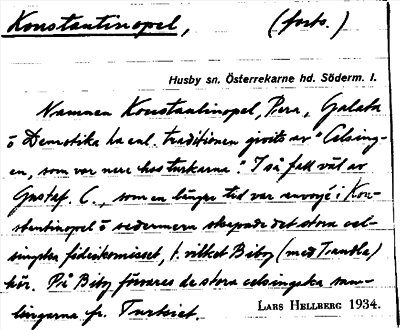 Konstantinopel, (forts.)
Husby sn. Österrekarne hd. Söderm. l.
Namnen Konstantinopel, Pera, Galata
o Demotika ha enl. traditionen givits av "Celsing-
en, som var nere hos turkarna". I så fall väl av
Gustaf. C., som en längre tid var envoyé i Kon-
stantinopel o sedermera skapade det stora cel-
singska fideikomisset, t. vilket Biby (med Tandla)
hör. På Biby förvaras de stora celsingska sam-
lingarna fr. Turkiet.
LARS HELLBERG 1934.